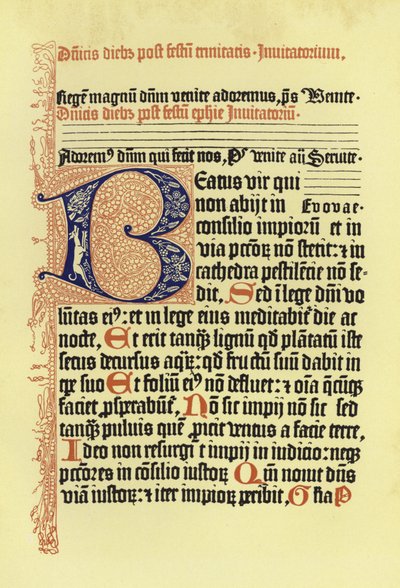 Dn̄icis diebꝫ post festū trinitatis · Inuitatorium,
Regē magnū dn̄m venite adoremus, p̄s Venite ·
Dn̄icis diebꝫ post festū ephie Inuitatoriū ·
Adoremꝰ dn̄m qui fecit nos, Pˢ venite an̄ Seruite ·
Beatus vir qui
non abijt in Evovae·
consilio impiorū et in
via pctōꝝ nō stetit: ⁊ in
cathedra pestilēcie nō se=
dit, Sed ī lege dn̄i vo
lūtas eiꝰ: et in lege eius meditabit᷑ die ac
nocte, Et erit tanꝗ̈ lignū qd̓ plātatū iste
secus decursus aqꝝ: qd̓ fructū suū dabit in
tp̄e suo Et foliū eiꝰ nō defluet: ⁊ oīa q̄cūꝗ
faciet ꝓsperabūt᷑, Nō sic impij nō sic sed
tanꝗ̈ puluis quē ꝓicit ventus a facie terre,
Ideo non resurgūt impij in iudicio: neqꝫ
pctōres in cōsilio iustoꝝ Qm̄ nouit dn̄s
viā iustoꝝ: ⁊ iter impioꝝ peribit, Gl̓ia P